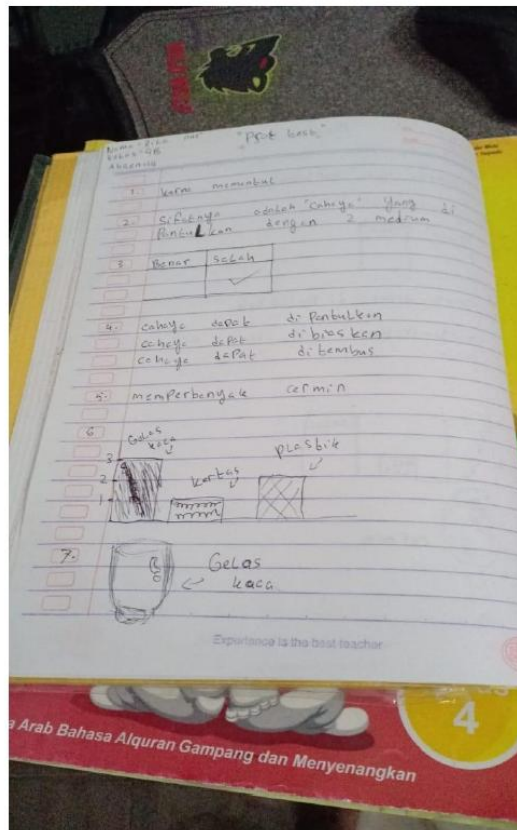 "Post test"
1. karna memantul
2. Sifatnya adalah "cahaya" yang di
PantuLkan dengan 2 medium
3 Benar salah
4. cahaya dapat di Pantulkan
cahaya dapat dibiaskan
cahaya dapat ditembus
5. memperbanyak cermin
6
Gelas
kaca
kertas
plastik
3
2
1
7.
Gelas
kaca
Experience is the best teacher
a Arab Bahasa Alquran Gampang dan Menyenangkan
4